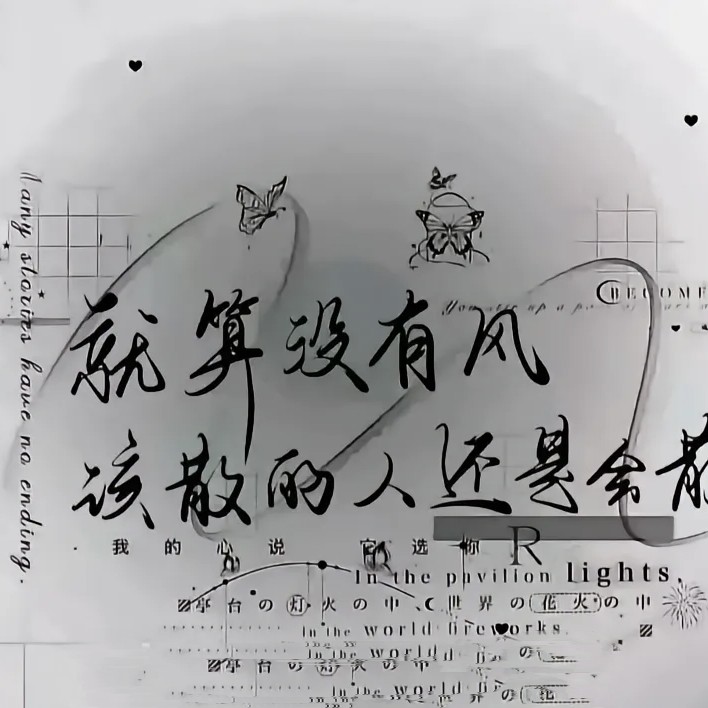 Many stories have no ending.
BECOME
就算没有风
该散的人还是会散
我的心说 它选你
R
In the pavilion lights.
亭台の灯火の中、世界の花火の中
in the world fireworks.
in the world fir
亭台の
in the world fir